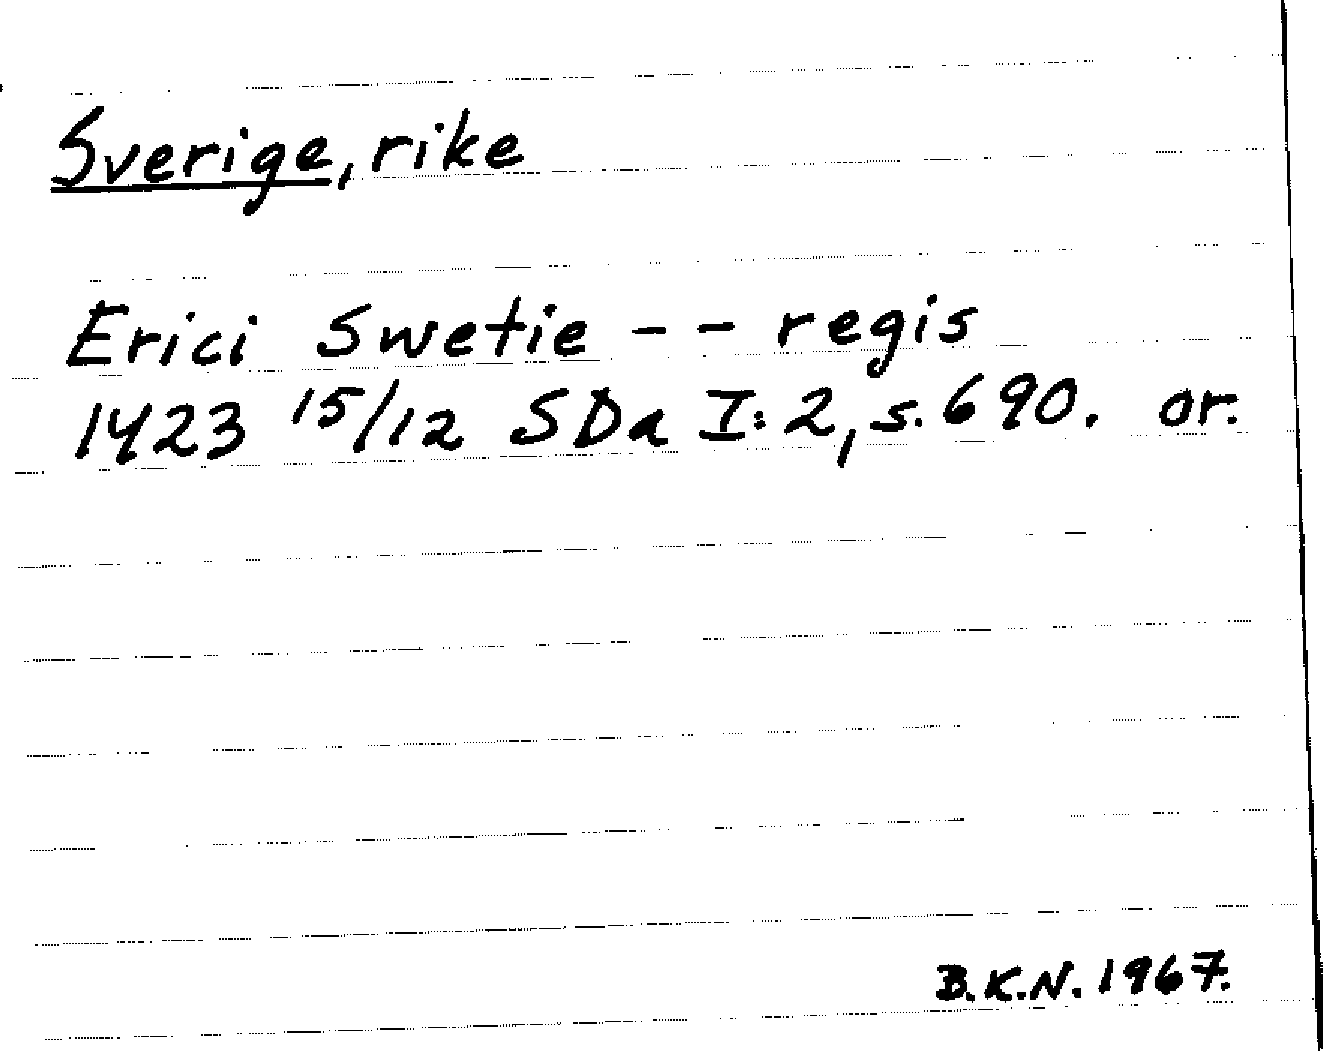 Sverige, rike
Erici Swetie - - regis
1423 15/12 SDa I:2, s. 690. or.
B.K.N. 1967.